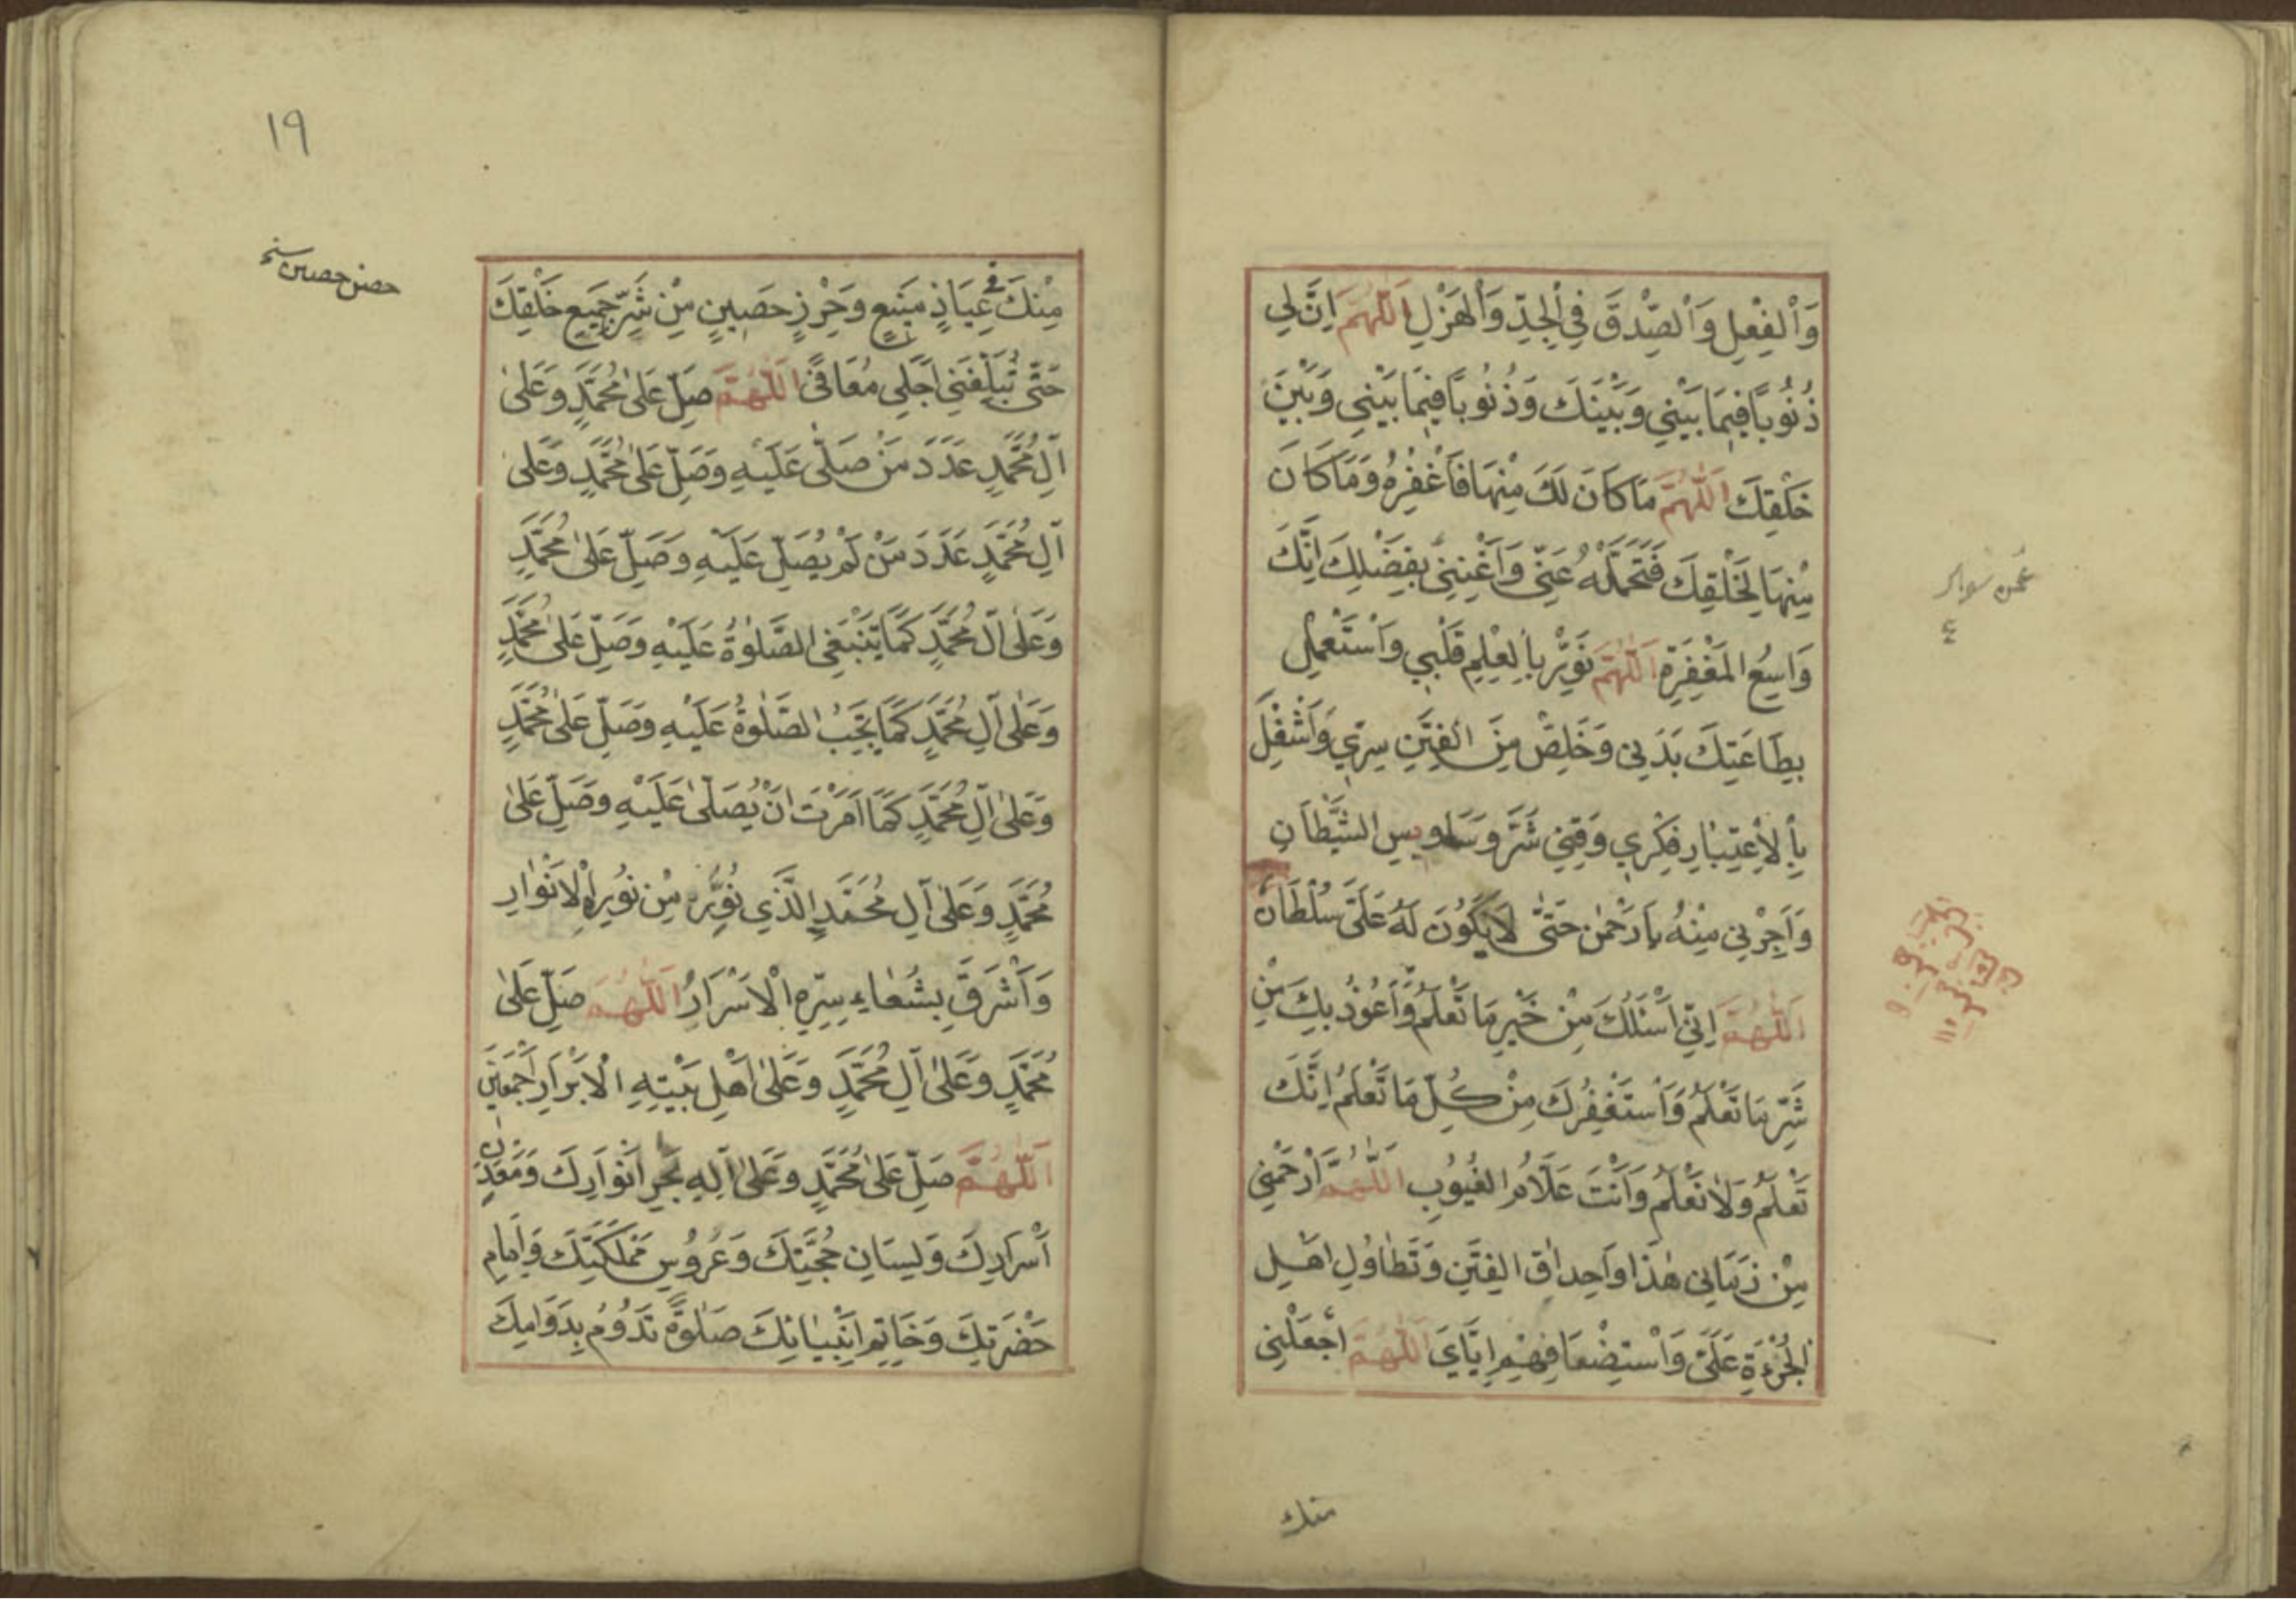 وَاْلفِعْلِ وَاْلصِّدْقَ فِي اْلجِدِّ وَاْلهَزْلِ اَللّٰهُمَّ اِنَّ لِي
ذُنُوبًا فِيمَا بَيْنِي وَبَيْنَكَ وَذُنُوبًا فِيمَا بَيْنِي وَبَيْنَ
خَلْقِكَ اَللّٰهُمَّ مَاكَانَ لَكَ مِنْهَا فَاَغْفِرْهُ وَمَاكَانَ
مِنْهَا لِخَلْقِكَ فَتَحَمَّلْهُ عَنِّي وَاَغْنِنِي بِفَضْلِكَ اِنَّكَ
وَاسِعُ المَغْفِرَةِ اَللّٰهُمَّ نَوِّرْ بِاْلعِلْمِ قَلْبِي وَاَسْتَعْمِلْ
بِطَاعَتِكَ بَدَنِي وَخَلِّصْ مِنَ الفِتَنِ سِرِّي وَاَشْغِلْ
بِاْلاِعْتِبَارِ فِكْرِي وَقِنِي شَرَّ وَسَاوِسِ الشَّيْطَانِ
وَاَجِرْنِي مِنْهُ يَا رَحْمٰنُ حَتّٰى لَايَكُونَ لَهُ عَلَيَّ سُلْطَانٌ
اَللّٰهُمَّ اِنِّي اَسْئَلُكَ مِنْ خَيْرِ مَا تَعْلَمُ وَاَعُوذُ بِكَ مِنْ
شَرِّ مَا تَعْلَمُ وَاَسْتَغْفِرُكَ مِنْ كُلِّ مَا تَعْلَمُ اِنَّكَ
تَعْلَمُ وَلَا نَعْلَمُ وَاَنْتَ عَلَّامُ الغُيُوبِ اَللّٰهُمَّ اَرْحَمْنِي
مِنْ زَمَانِي هٰذَا وَاَحِدَاقِ الفِتَنِ وَتَطَاوُلِ اَهْلِ
الجُرْءَةِ عَلَيَّ وَاَسْتِضْعَافِهِمْ اِيَّايَ اَللّٰهُمَّ اَجْعَلْنِي
منك
١٩
مِنْكَ فِي عِيَاذٍ مَنِيعٍ وَحِرْزٍ حَصِينٍ مِنْ شَرِّ جَمِيعِ خَلْقِكَ
حصن حصين نسخه
حَتّٰى تُبَلِّغَنِي اَجَلِي مُعَافًى اَللّٰهُمَّ صَلِّ عَلىٰ مُحَمَّدٍ وَعَلىٰ
اٰلِ مُحَمَّدٍ عَدَدَ مَنْ صَلّٰى عَلَيْهِ وَصَلِّ عَلىٰ مُحَمَّدٍ وَعَلىٰ
اٰلِ مُحَمَّدٍ عَدَدَ مَنْ لَمْ يُصَلِّ عَلَيْهِ وَصَلِّ عَلىٰ مُحَمَّدٍ
وَعَلىٰ اٰلِ مُحَمَّدٍ كَمَا يَنْبَغِي الصَّلٰوةُ عَلَيْهِ وَصَلِّ عَلىٰ مُحَمَّدٍ
وَعَلىٰ اٰلِ مُحَمَّدٍ كَمَا يَجِبُ الصَّلٰوةُ عَلَيْهِ وَصَلِّ عَلىٰ مُحَمَّدٍ
وَعَلىٰ اٰلِ مُحَمَّدٍ كَمَا اَمَرْتَ اَنْ يُصَلّٰى عَلَيْهِ وَصَلِّ عَلىٰ
مُحَمَّدٍ وَعَلىٰ اٰلِ مُحَمَّدٍ الَّذَي نُوِّرُهُ مِنْ نُورِ اْلاَنْوَارِ
وَاَشْرَقَ بِشُعَاعِ سِرِّهِ اْلاَسْرَارُ اَللّٰهُمَّ صَلِّ عَلىٰ
مُحَمَّدٍ وَعَلىٰ اٰلِ مُحَمَّدٍ وَعَلىٰ اَهْلِ بَيْتِهِ اْلاَبْرَارِ اَجْمَعِينَ
اَللّٰهُمَّ صَلِّ عَلىٰ مُحَمَّدٍ وَعَلىٰ اٰلِهِ بَحْرِ اَنْوَارِكَ وَمَعْدِنِ
اَسْرَارِكَ وَلِسَانِ حُجَّتِكَ وَعَرُوسِ مَمْلَكَتِكَ وَاِمَامِ
حَضْرَتِكَ وَخَاتِمِ اَنْبِيَائِكَ صَلٰوةً تَدُوُمُ بِدَوَامِكَ